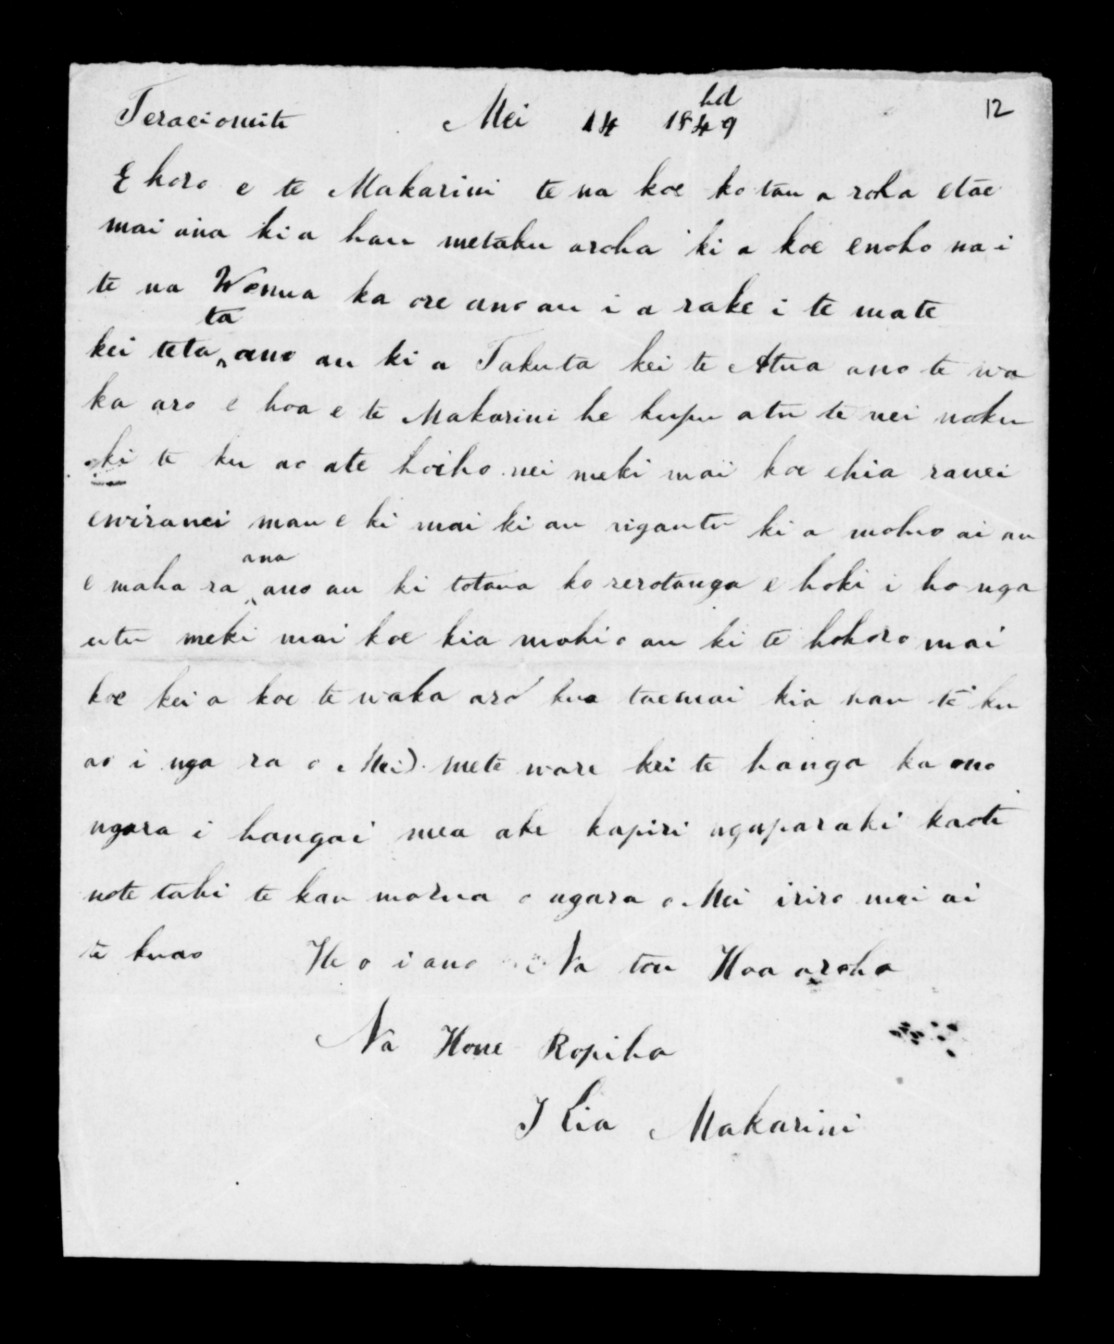 12
Teraciomite Mei 14 1849
E horo e te Makarini te na koe ko tau a roha etae
mai ana ki a hau metaku aroha ki a koe enoho na i
te na Wenua ka ore ano au i a rake i te mate
kei teta ta ano au ki a Takuta kei te Atua ano te wa
ka aro e hoa e te Makarini he kupu atu te nei noku
ki te ku ao ate hoiho nei meki mai koe ehia ranei
ewiranei mau e ki mai ki au rigantu ki a mohio ai au
e maha ra ana ano au ki totaua ko rerotanga e hoki i ho nga
utu meki mai koe kia mohio au ki te hohoro mai
koe kei a koe te waka aro kua taemai kia hau te ku
ao i nga ra o Mei mete ware kei te hanga ka ono
ngara i hangai mea ake kapiri ngaparaki kaoti
note tahi te kau marua o ngara o Mei iriro mai ai
te kuao He o i ano Na tou Hoa aroha
Na Hone Ropiha
I Kia Makarini